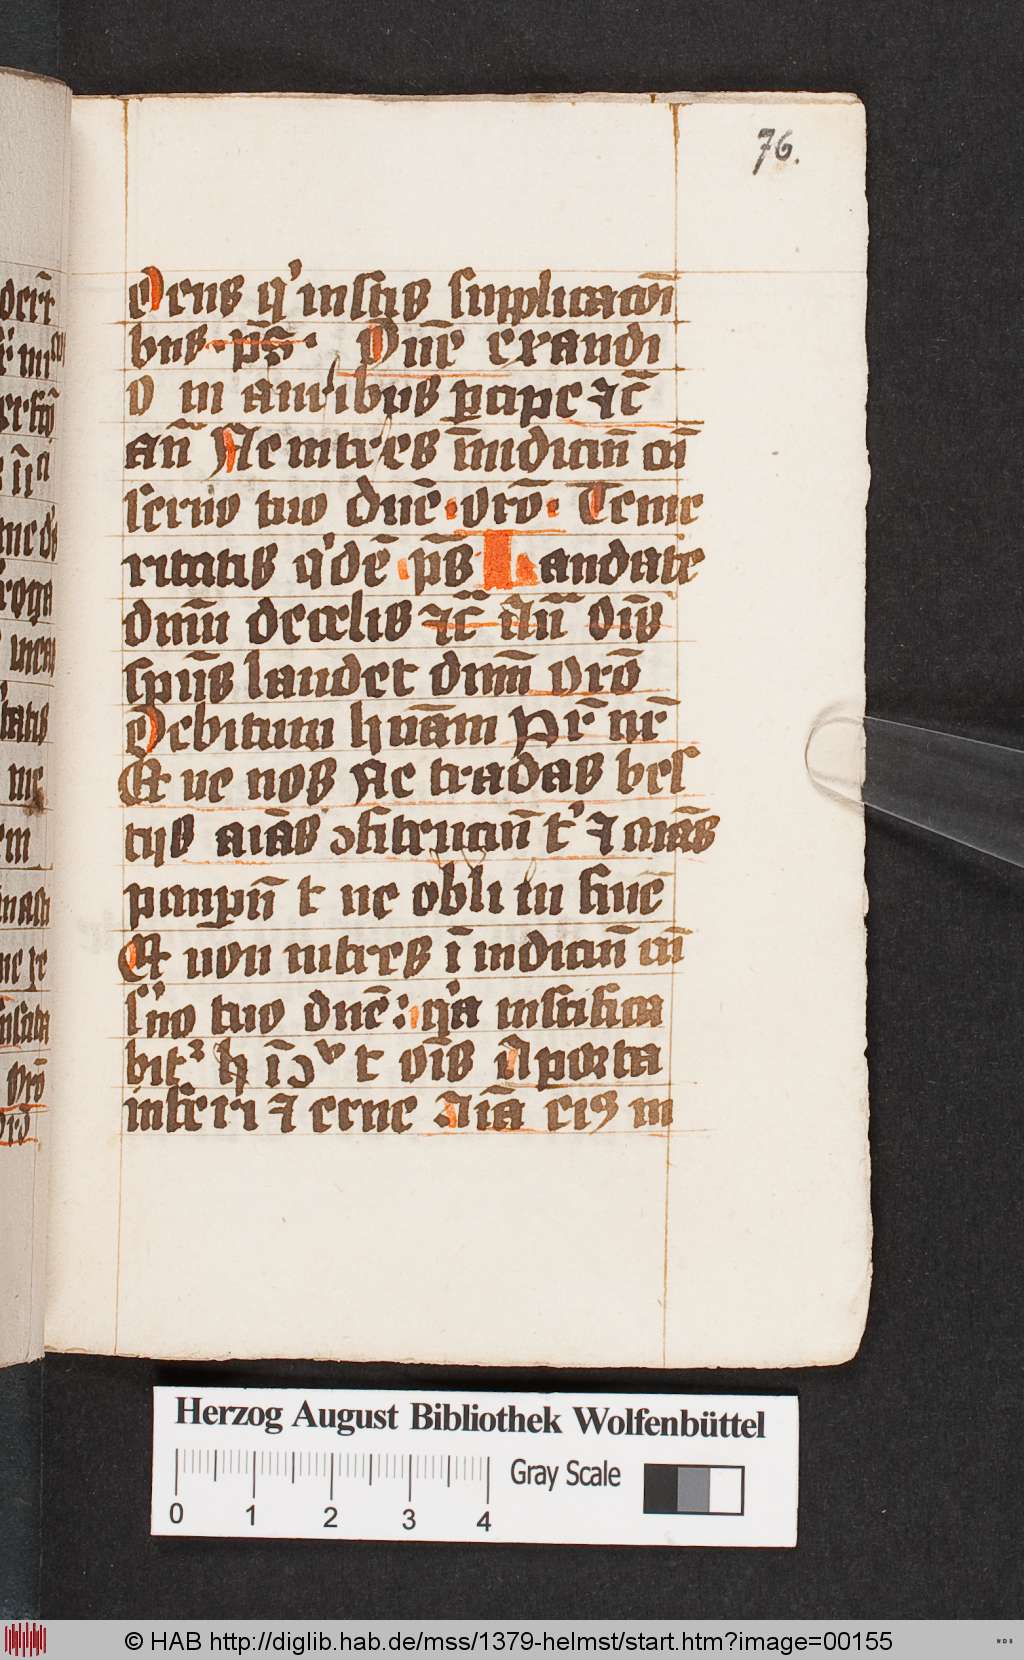 76.
Deus q' iustis supplicacōi
bus · pṡ · Dn̄e exaudi
o m auribus ꝑcipe ⁊c̄
an̄ Ne intres ī iudiciū cū
seruo tuo dn̄e · orō · Teme
ritatis q'dē · pṡ Laudate
dn̄m de celis ⁊c̄ Añ Oīs
sp̄us laudet dn̄m Orō
Debitum hūam Pr̄ nr̄
Et ne nos Ne tradas bes
tijs aīas ↄfitenciū t' ⁊ aīas
pauꝑū t ne obli in finē
Et non intres ī iudiciū cū
s'uo tuo dn̄e : q'a iustifica
bit' h ī ↄᵛ t oīs A porta
inferi ⁊ erue Aīa eis in
Herzog August Bibliothek Wolfenbüttel
Gray Scale
0 1 2 3 4
© HAB http://diglib.hab.de/mss/1379-helmst/start.htm?image=00155